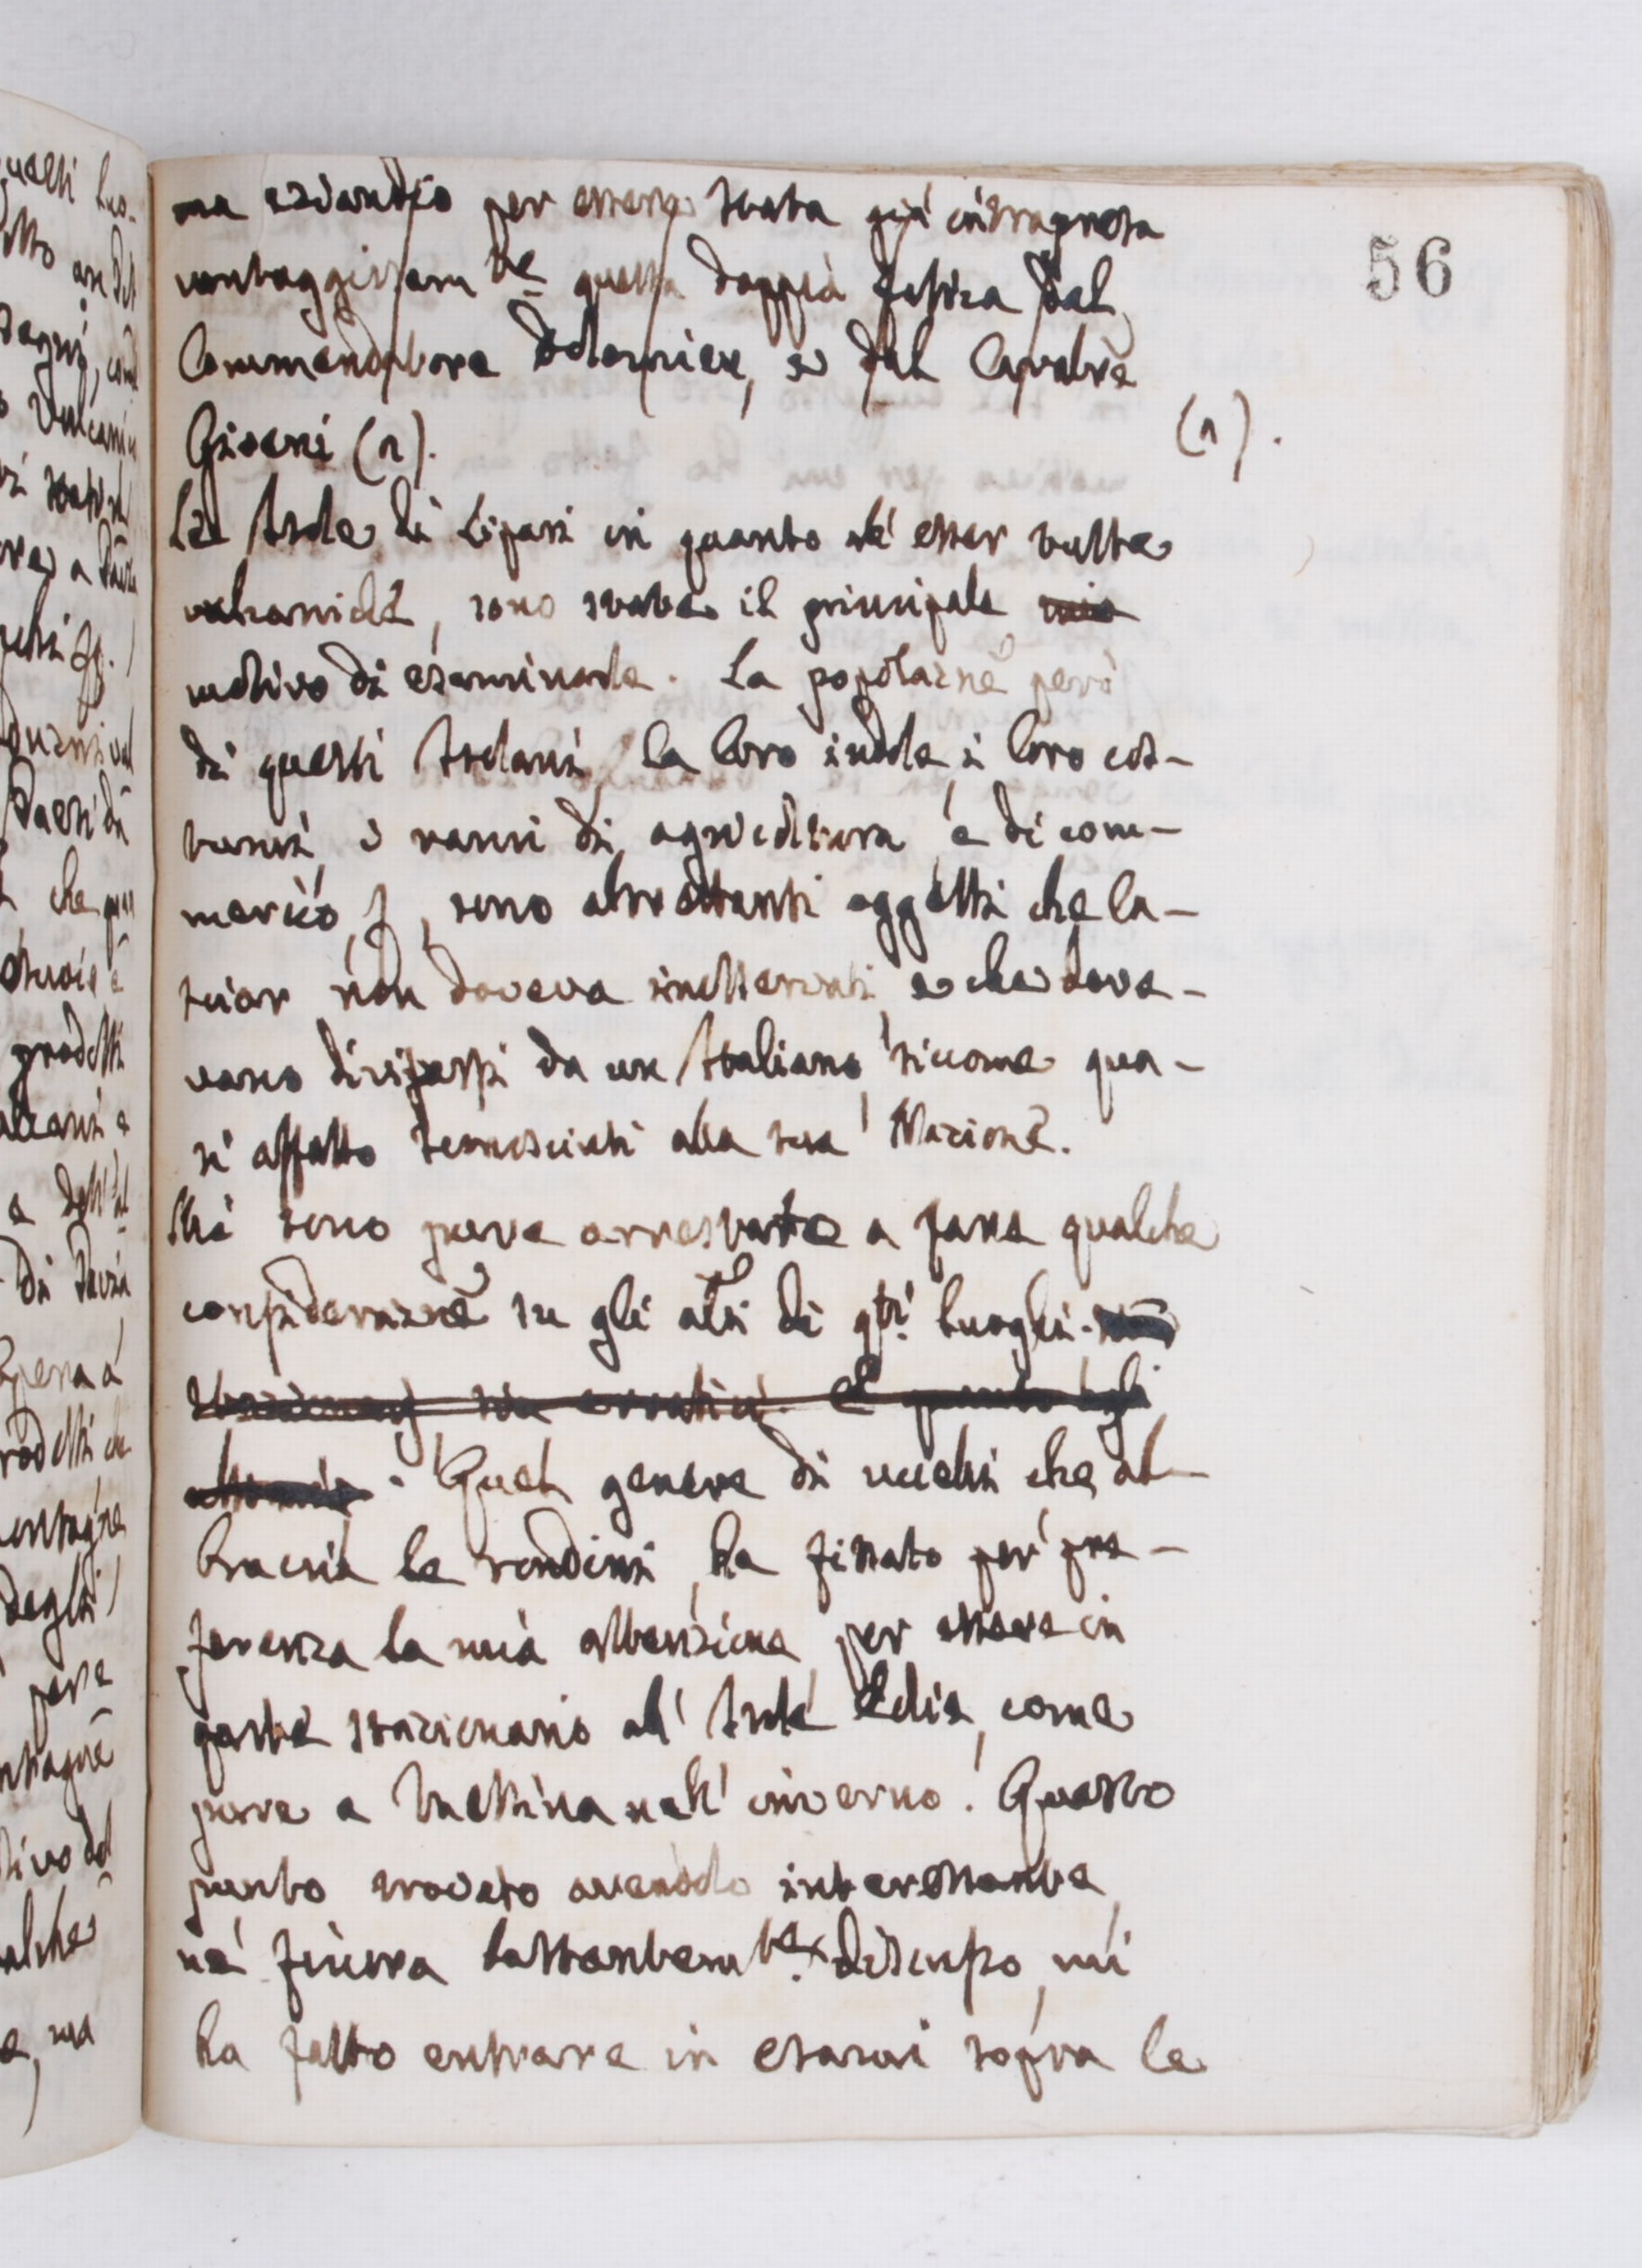 56
ma eziandio per essere stata già intrapresa
vantaggiosam.te questa doppia fatica dal
Commendatore Dolomieu, e dal Cavalre
Gioeni (a).
(a).
Le Isole di Lipari in quanto all' esser tutte
vulcaniche, sono state il principale mio
motivo di esaminarle. La popolazne però
di questi Isolani, la loro indole, i loro cos-
tumi, i rami di agricoltura e di com-
mercio, sono altrettanti oggetti che la-
sciar non doveva inosservati, e che dove-
vano dirsi da un Italiano siccome qua-
si affatto sconosciuti alla sua Nazione.
Mi sono pure arrestato a fare qualche
considerazne su gli alti di qti luoghi.
stazionarj, sia erratici. E quanto agli
Quel genere di uccelli che ab-
braccia le rondini, ha fissato per pre-
ferenza la mia attenzione per essere in
parte stazionario all' Isole Eolie, come
pure a Messina nell' inverno. Questo
punto trovato avendolo interessante,
nè finora bastantem.te discusso, mi
ha fatto entrare in esami sopra le